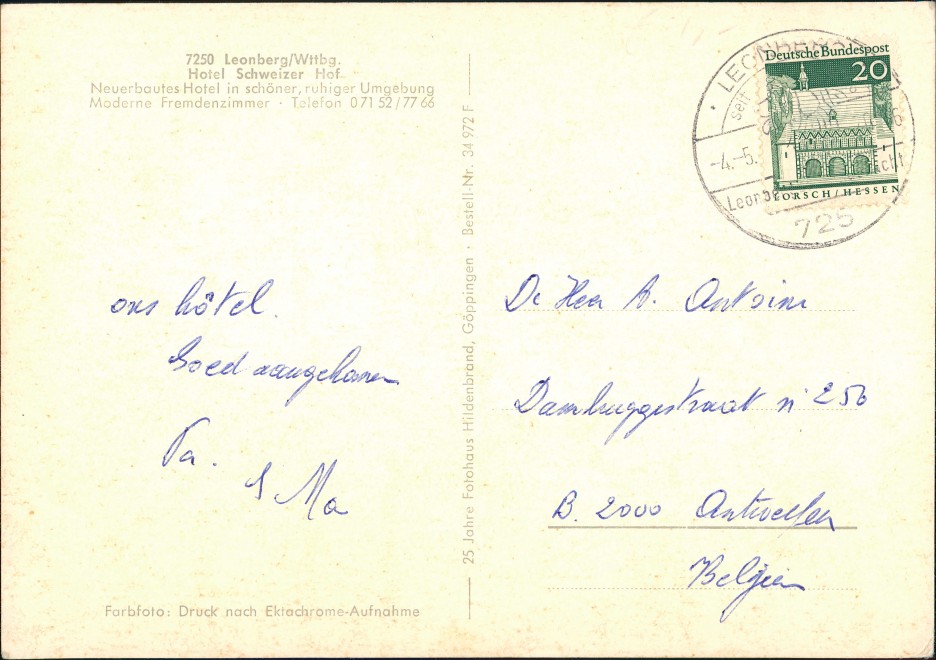 7250 Leonberg/Wttbg.
Hotel Schweizer Hof
Neuerbautes Hotel in schöner, ruhiger Umgebung
Moderne Fremdenzimmer · Telefon 071 52/77 66
ons hôtel.
Goed aangekomen
Pa.
Ma
Farbfoto: Druck nach Ektachrome-Aufnahme
25 Jahre Fotohaus Hildenbrand, Göppingen · Bestell-Nr. 34 972 F
Deutsche Bundespost
20
LORSCH/HESSEN
LEONBERG
seit
-4.-5.
725
De Heer A. Antoine
Dambruggestraat n 250
B. 2000 Antwerpen
Belgien